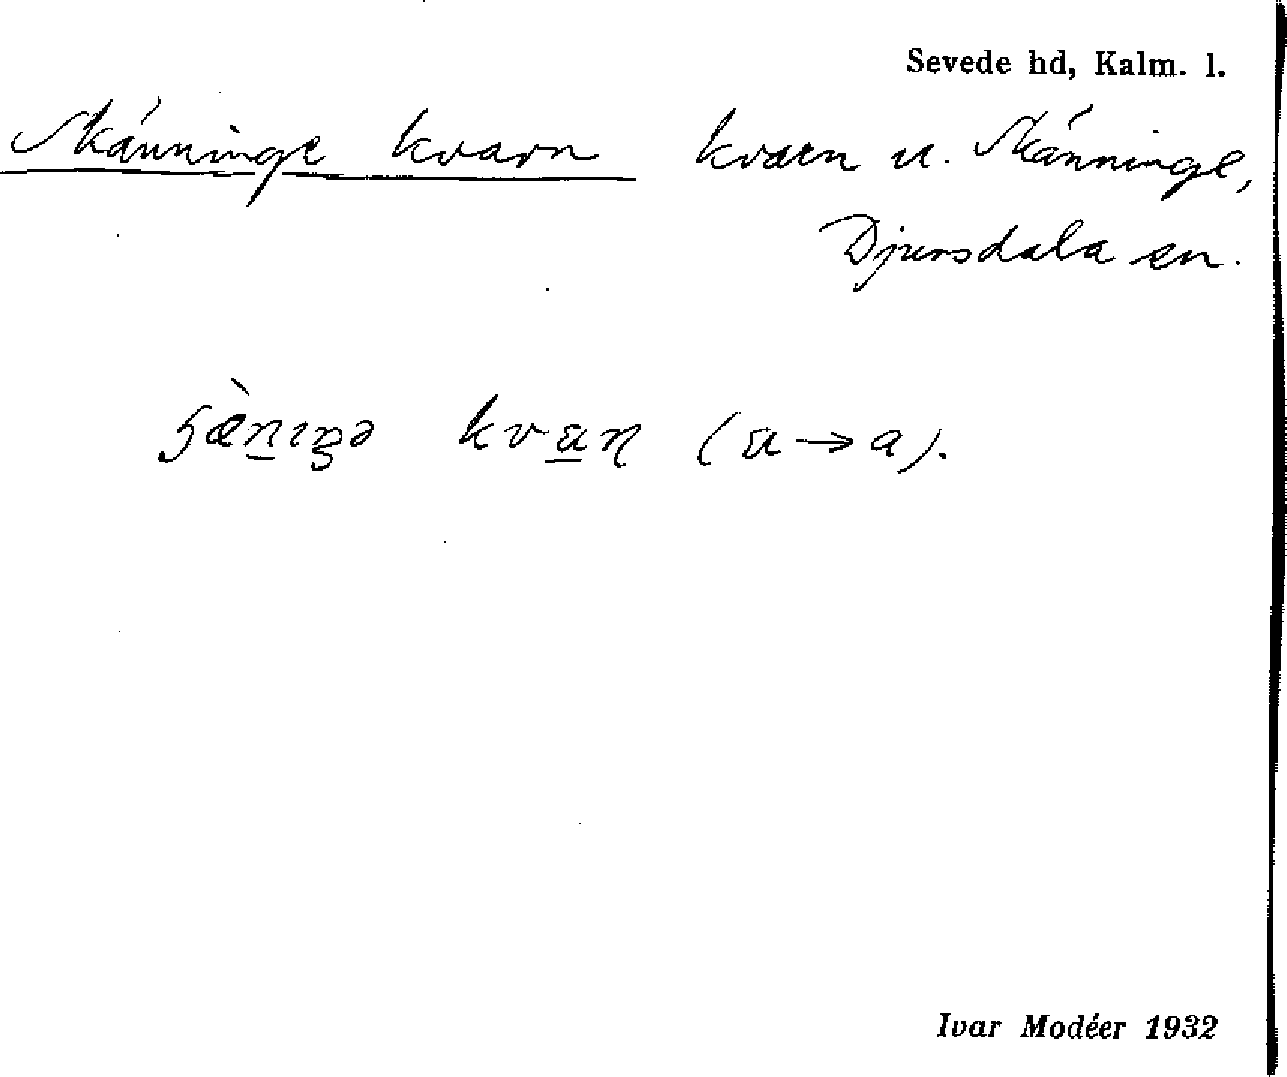 Sevede hd, Kalm. l.
Skänninge kvarn kvarn u. Skänninge,
Djursdala sn.
kvan (a → a).
Ivar Modéer 1932